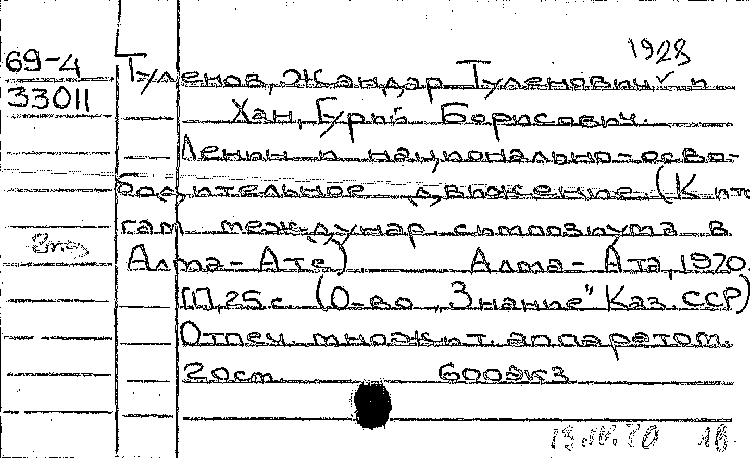 1928
69-4 Туленов, Жандар Туленович и
33011 Хан, Гурий Борисович.
Ленин и национально-осво-
бодительное движение (К ито
гам междунар. симпозиума в
Алма-Ате) Алма-Ата, 1970.
[1], 25 с. (О-во „Знание" Каз.ССР)
Отпеч. множит. аппаратом.
20см 600экз